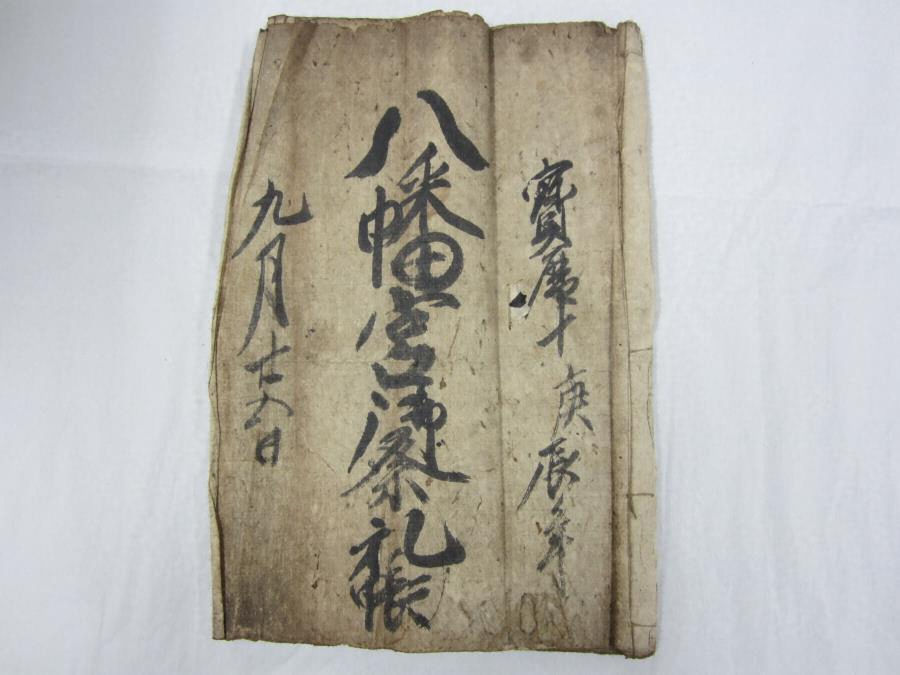 寳暦十庚辰年
八幡宮御祭礼帳
九月廿五日